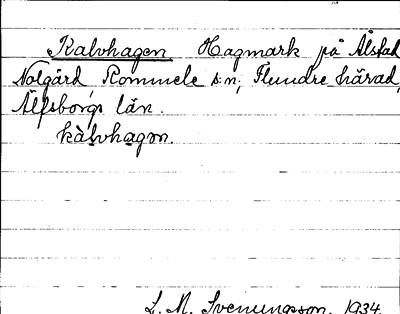 Kalvhagen Hagmark på Ålstad
Nolgård Rommele s:n, Flundre härad,
Älfsborgs län.
kàlvhagɷn.
L. M. Svenungsson. 1934.